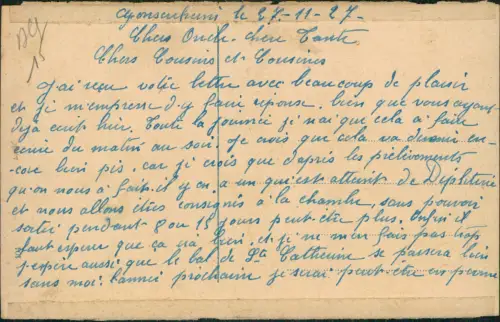 le 27-11-27-
Chers Oncle - chère Tante
Chers Cousins et Cousines
J'ai reçu votre lettre avec beaucoup de plaisir
et je m'empresse d'y faire réponse. bien que vous ayant
déjà écrit hier. Toute la journée je n'ai que cela à faire
écrire du matin au soir. Je crois que cela va devenir en-
core bien pis, car je crois que d'après les prélèvements
qu'on nous a fait, il y en a un qui est atteint de Diphtérie
et nous allons êtres consignés à la chambre, sans pouvoir
sortir pendant 8 ou 15 jours peut-être plus. Enfin il
faut espérer que ça ira bien, et je ne m'en fais pas trop
J'espère aussi que le bal de Ste Catherine se passera bien
sans moi. L'année prochaine je serai peut-être en perme
15